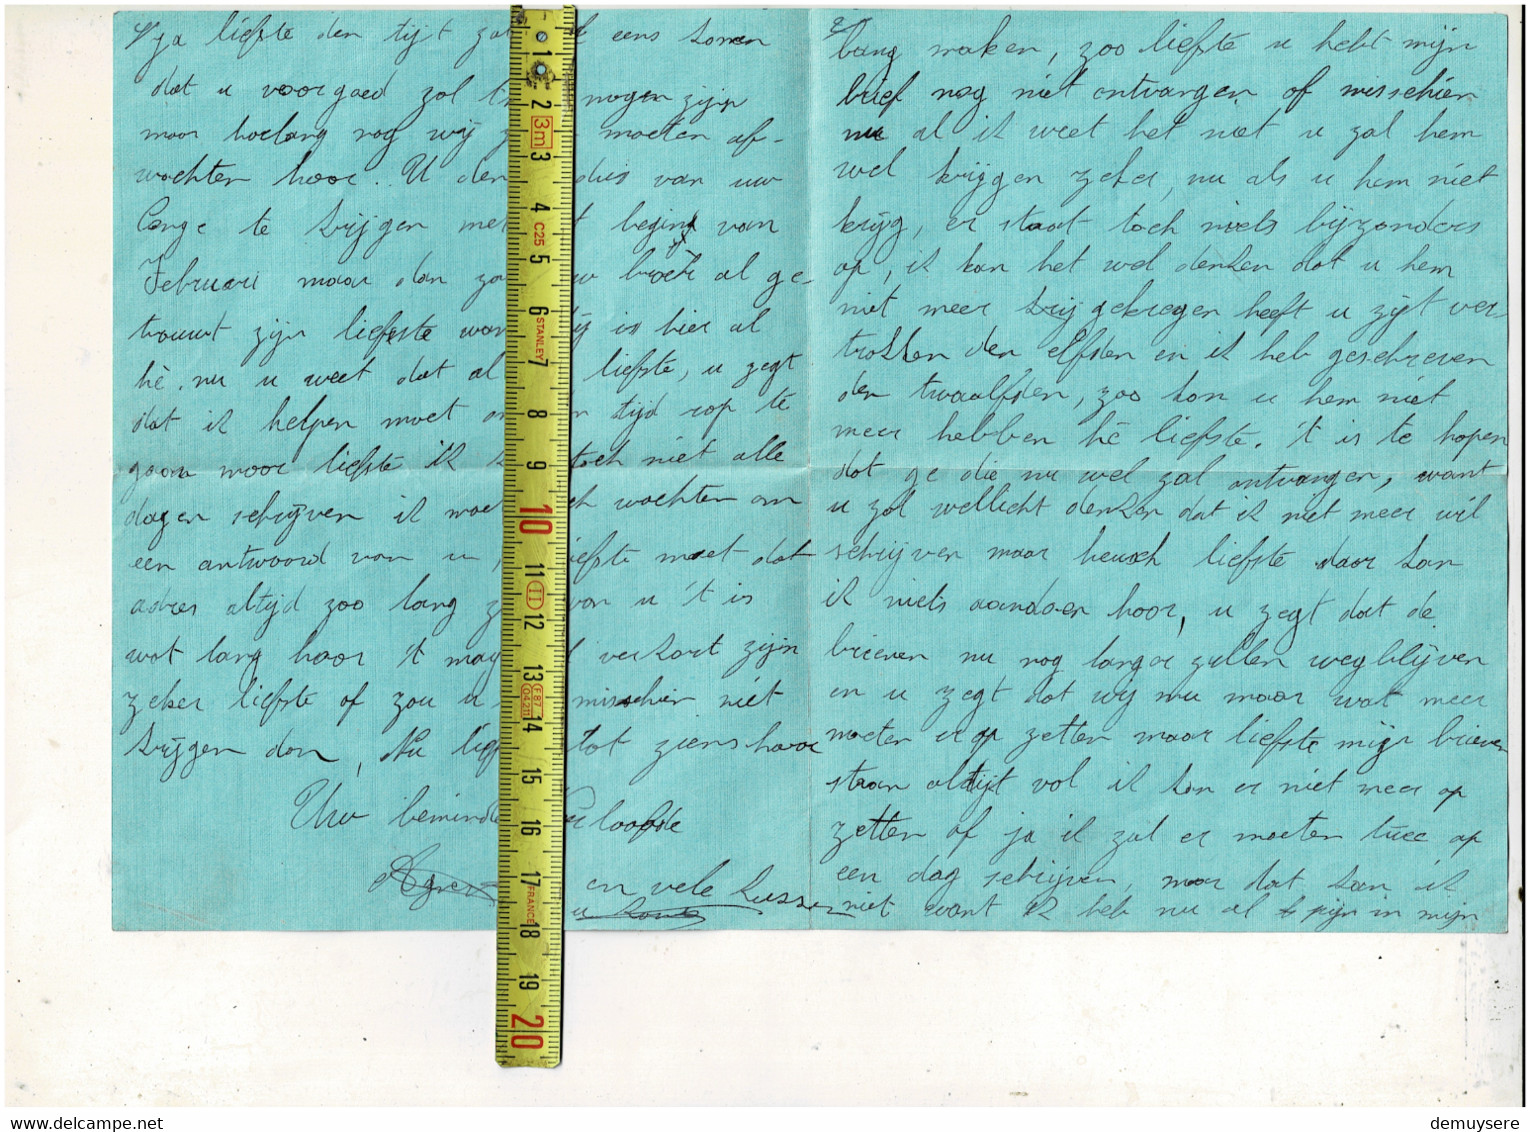 4/ ja liefste den tijt zal eens komen
dat u voorgoed zal mogen zijn
maar hoelang nog wij moeten af-
wachten hoor. U den dus van uw
Conge te krijgen met begin van
Februari maar dan za uw broer al ge-
trouwt zijn liefste wan is hier al
hè. nu u weet dat al liefste, u zegt
dat ik helpen moet om tijd rop te
gaan maar liefste ik k toch niet alle
dagen schrijven ik moet wachten om
een antwoord van u, liefste moet dat
adres altijd zoo lang z van u 't is
wat lang hoor 't mag verkort zijn
zeker liefste of zou u misschien niet
krijgen dan, Nu lief tot ziens hoor
Uw beminde verloofde
Agnes en vele kussen
2
bang maken, zoo liefste u hebt mijn
brief nog niet ontvangen of misschien
nu al ik weet het niet u zal hem
wel krijgen zeker, nu als u hem niet
krijg, er staat toch niets bijzonders
op, ik kan het wel denken dat u hem
niet meer krij gekregen heeft u zijt ver-
trokken den elfden en ik heb geschreven
den twaalfden, zoo kon u hem niet
meer hebben hè liefste. 't is te hopen
dat ge die nu wel zal ontvangen, want
u zal wellicht denken dat ik niet meer wil
schrijven maar heusch liefste daar kan
ik niets aandoen hoor, u zegt dat de
brieven nu nog langer zullen wegblijven
en u zegt dat wij nu maar wat meer
moeten er op zetten maar liefste mijn brieven
staan altijt vol ik kan er niet meer op
zetten of ja ik zal er moeten twee op
een dag schrijven, maar dat kan ik
niet want ik heb nu al pijn in mijn
1 2 3m 3 4 C25 5 6 STANLEY 7 8 9 10 11 II 12 13 F87 04211 14 15 16 17 FRANCE 18 19 20
demuysere